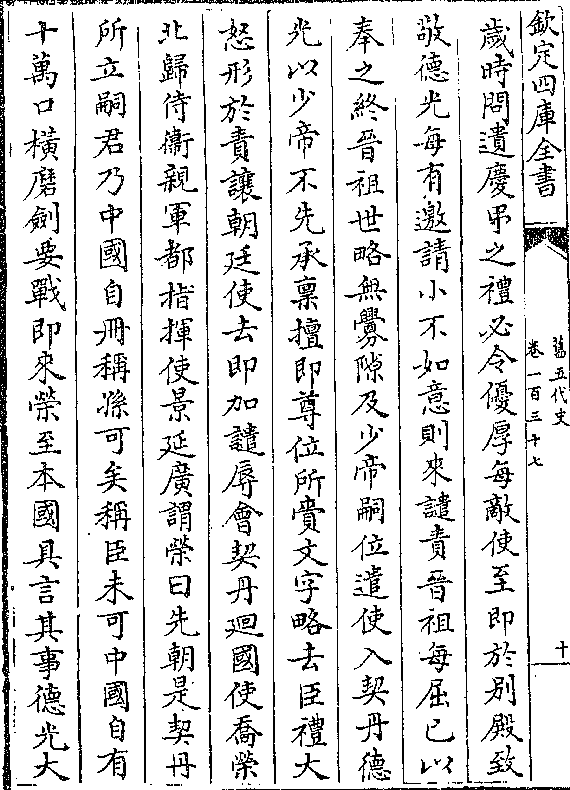 欽定四庫全書
舊五代史
卷一百三十七
十
歲時問遺慶弔之禮必令優厚每敵使至即於別殿致
敬德光每有邀請小不如意則來譴責晉祖每屈已以
奉之終晉祖世略無釁隙及少帝嗣位遣使入契丹德
光以少帝不先承稟擅即尊位所賫文字略去臣禮大
怒形於責讓朝廷使去即加譴辱會契丹廻國使喬榮
北歸侍衞親軍都指揮使景延廣謂榮曰先朝是契丹
所立嗣君乃中國自冊稱孫可矣稱臣未可中國自有
十萬口橫磨劍要戰即來榮至本國具言其事德光大